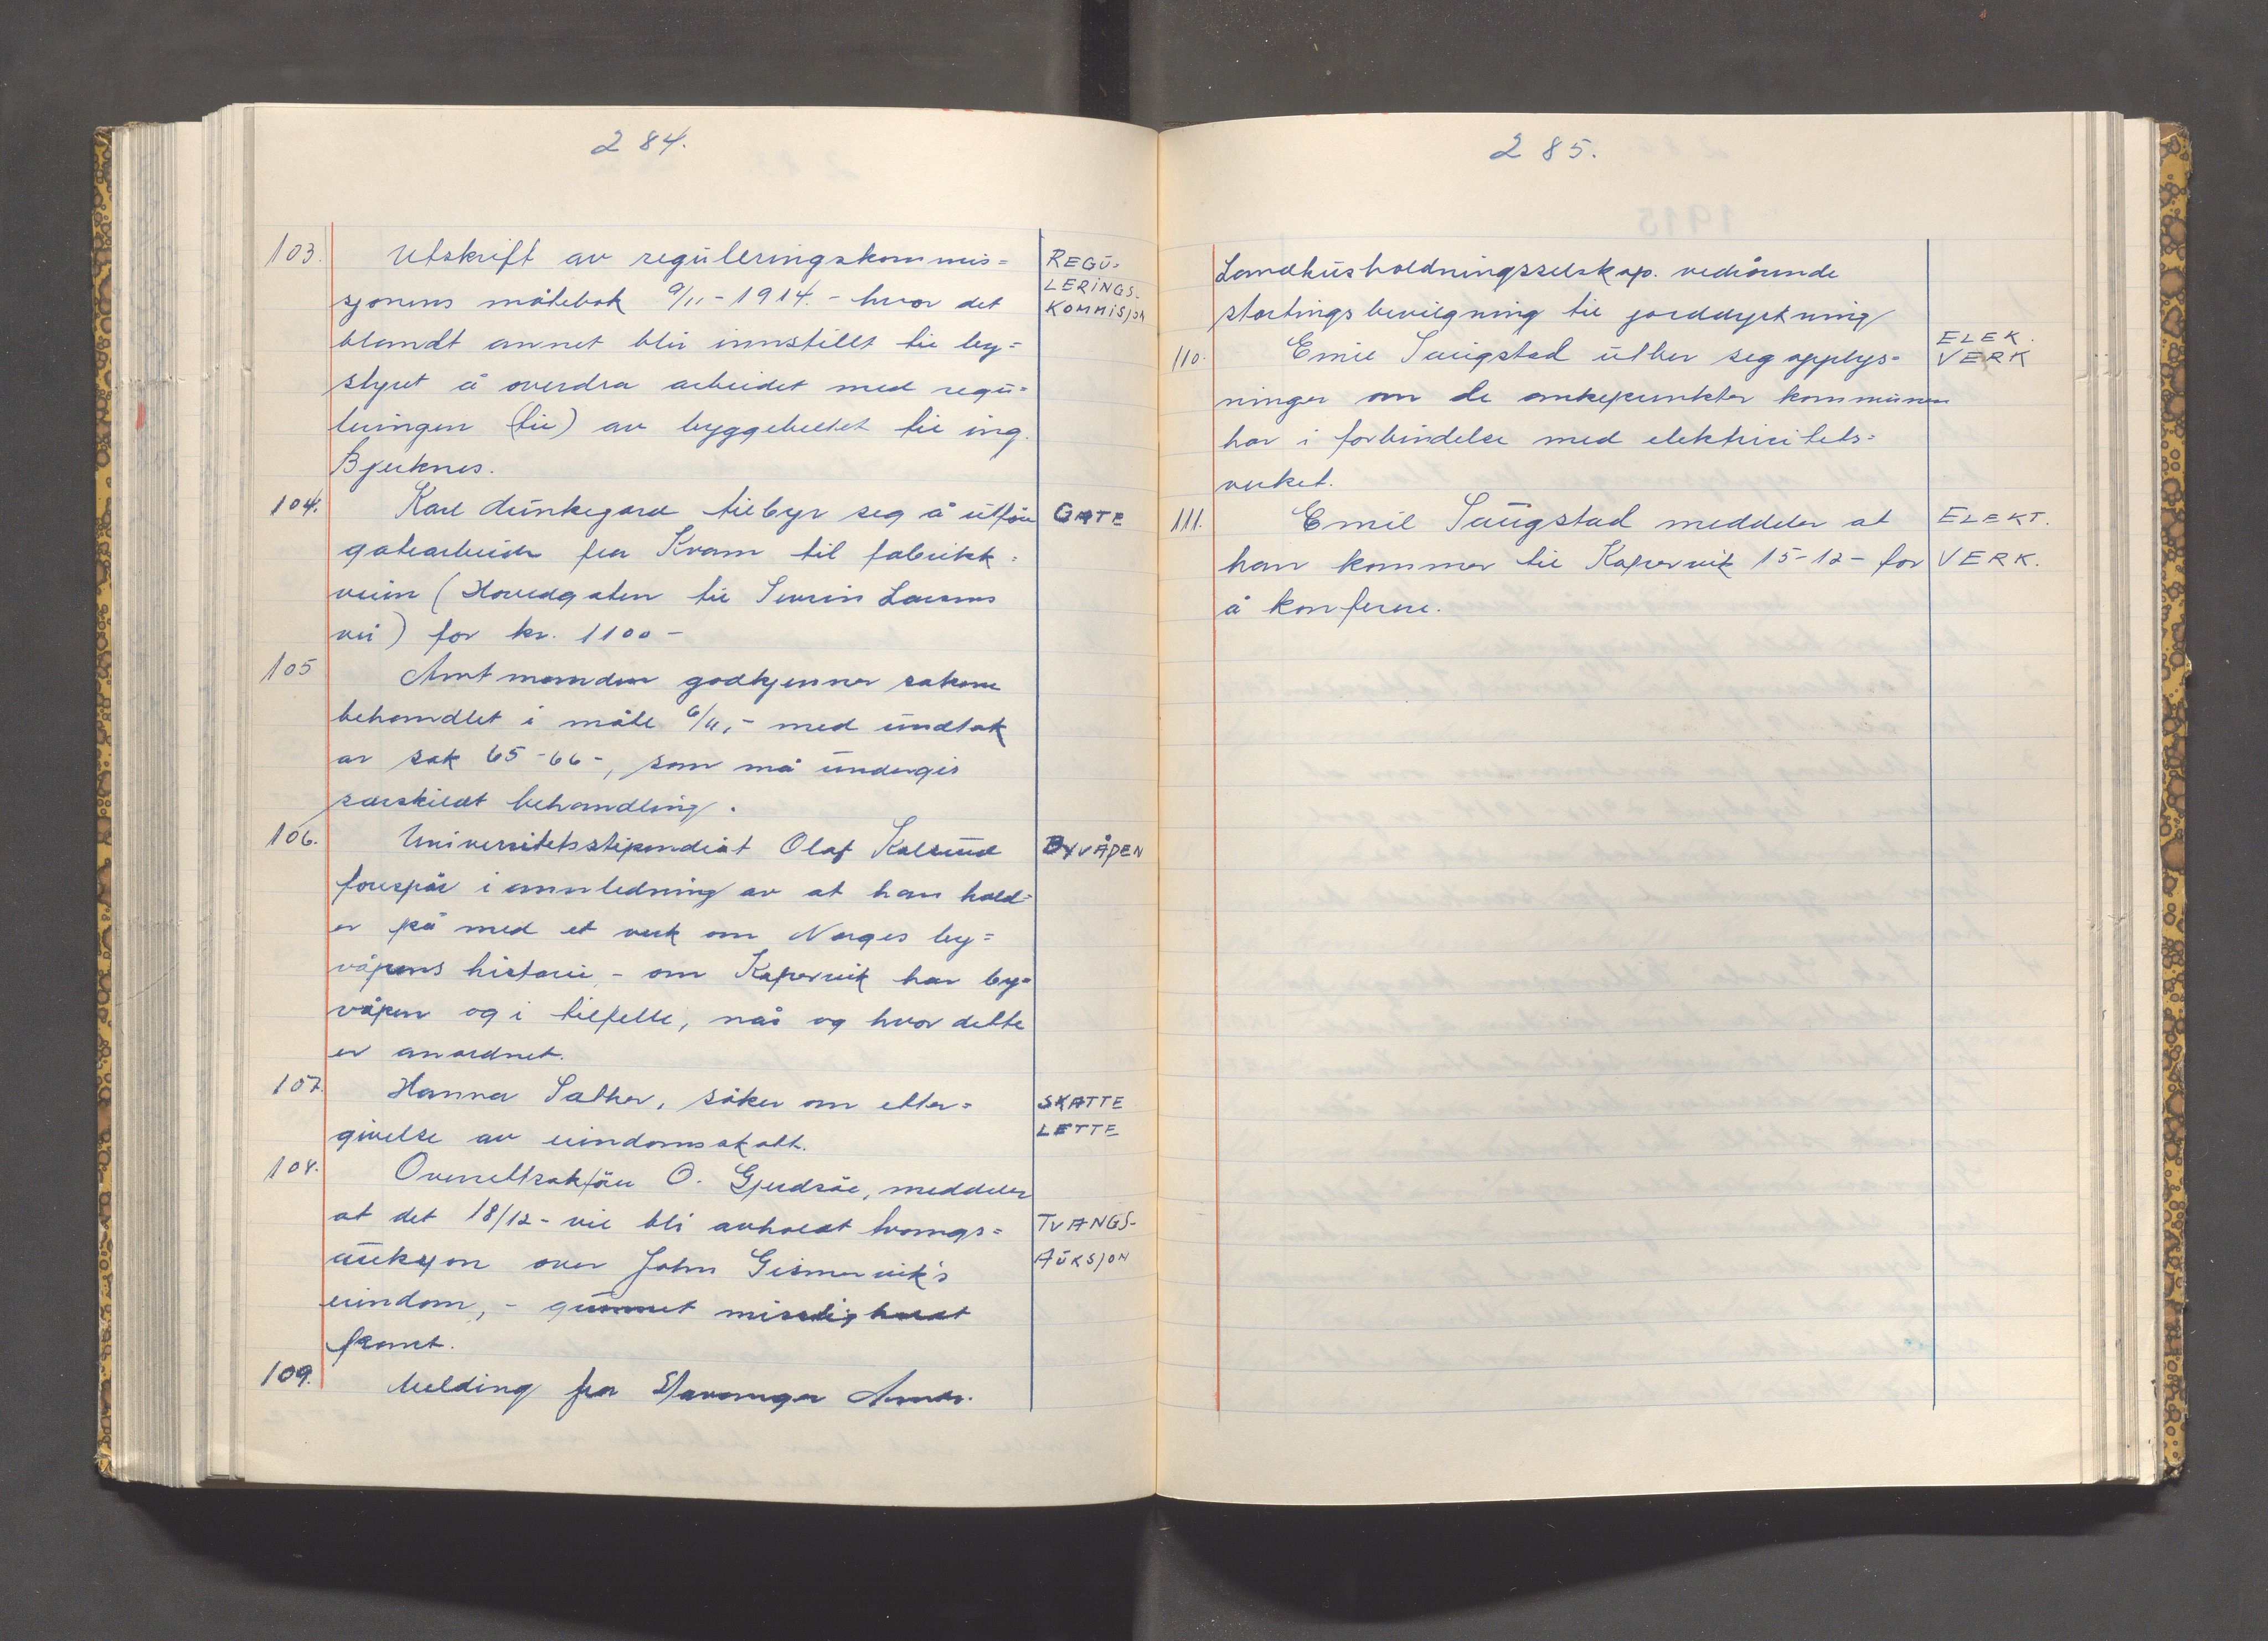 284.
103. Utskrift av reguleringskommis= REGU-
LERINGS-
sjonens møtebok 9/11-1914.- hvor det KOMMISJON
blandt annet blir innstillt til by=
styret å overdra arbeidet med regu=
leringen (til) av byggebeltet til ing.
Bjerknes.
104. Karl Dunkegard tilbyr seg å utføre GATE
gatearbeide fra Kvam til fabrikk=
veien (Hovedgaten til Severin Larsens
vei) for kr. 1100-
105 Amtmanden godkjenner sakene
behandlet i møte 6/11,- med undtak
av sak 65-66-, som må undergis
særskildt behandling.
106. Universitetsstipendiat Olaf Kolsrud BYVÅPEN
forespør i anledning av at han hold=
er på med et verk om Norges by=
våpens historie,- om Kopervik har by=
våpen og i tilfelle, når og hvor dette
er anordnet.
107. Hanna Sæther, søker om etter= SKATTE
LETTE
givelse av eiendomsskatt.
108. Overrettsakfører O. Gjerdsøe, meddeler
at det 18/12- vil bli avholdt tvangs= TVANGS-
auksjon over John Gismervik's AUKSJON
eiendom,- grunnet misslighold
fremt.
109. Melding fra Stavanger Amts.
285.
Landhusholdningsselskap. vedrørende
stortingsbevilgning til jorddyrkning
110. Emil Saugstad utber seg opplys= ELEK.
VERK
ninger om de ankepunkter kommunen
har i forbindelse med elektrisitets=
verket.
111. Emil Saugstad meddeler at ELEKT.
han kommer til Kopervik 15-12- for VERK.
å konferere.